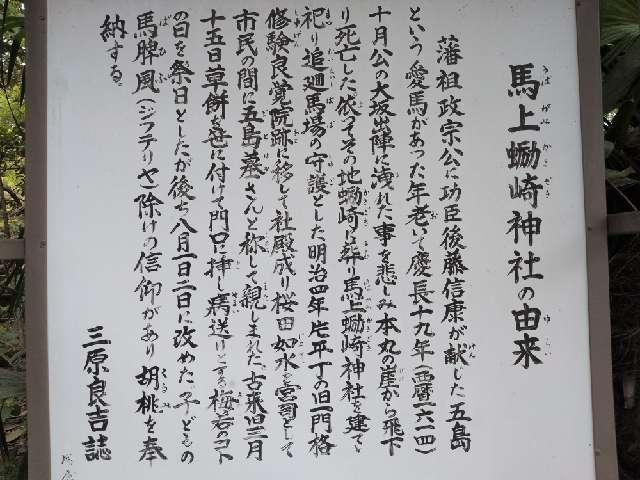 馬上蛎崎神社の由来
藩祖政宗公に功臣後藤信康が献した五島
という愛馬があった年老いて慶長十九年(西暦一六一四)
十月公の大坂出陣に洩れた事を悲しみ本丸の崖から飛下
り死亡した依てその地蛎崎に葬り馬上蛎崎神社を建て
祀り追廻馬場の守護とした明治四年片平丁の旧一門格
修験良覚院跡に移して社殿成り桜田如水を宮司として
市民の間に五島墓さんと称して親しまれた古来旧三月
十五日草餅を苞に付けて門口に挿し病送りとする梅若のコト
の日を祭日としたが後ち八月一日二日に改めた子どもの
馬脾風(ジフテリヤ)除けの信仰があり胡桃を奉
納する
三原良吉誌